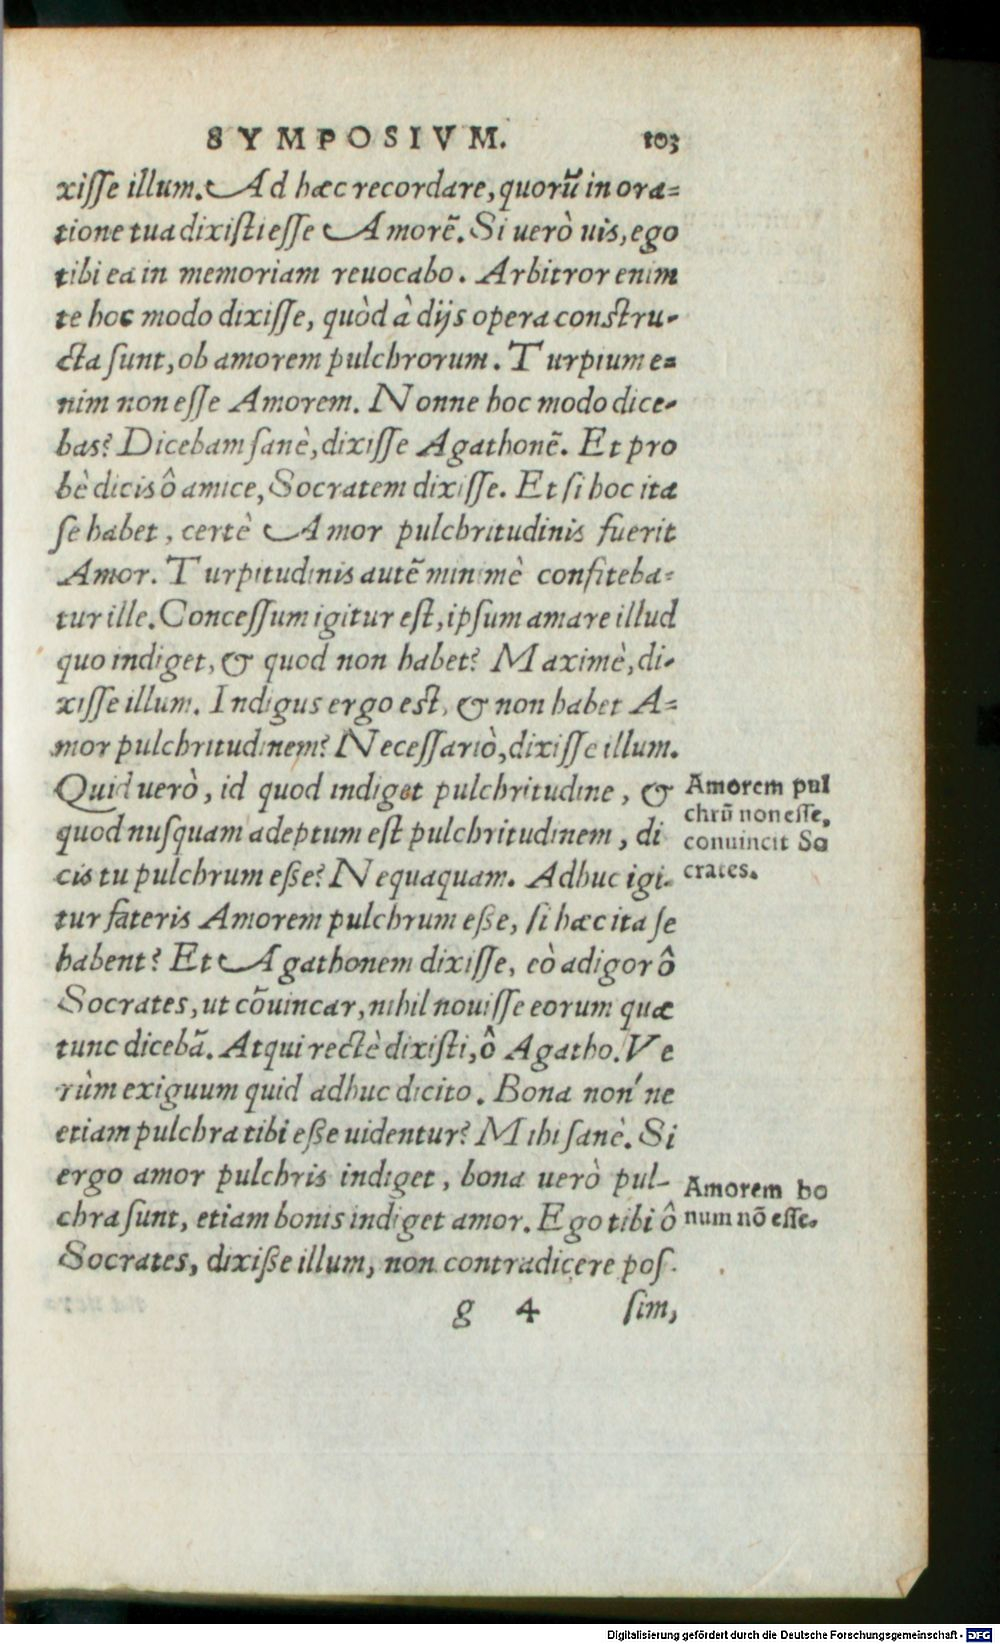 SYMPOSIVM. 103
xisse illum. Ad hæc recordare, quorũ in ora=
tione tua dixisti esse Amorẽ. Si uerò uis, ego
tibi ea in memoriam reuocabo. Arbitror enim
te hoc modo dixisse, quòd à dijs opera constru-
cta sunt, ob amorem pulchrorum. Turpium e=
nim non esse Amorem. Nonne hoc modo dice-
bas? Dicebam sanè, dixisse Agathonẽ. Et pro
bè dicis ô amice, Socratem dixisse. Et si hoc ita
se habet, certè Amor pulchritudinis fuerit
Amor. Turpitudinis autẽ minimè confiteba=
tur ille. Concessum igitur est, ipsum amare illud
quo indiget, & quod non habet? Maximè, di-
xisse illum. Indigus ergo est, & non habet A=
mor pulchritudinem? Necessariò, dixisse illum.
Quid uerò, id quod indiget pulchritudine, &
quod nusquam adeptum est pulchritudinem, di
cis tu pulchrum eße? Nequaquam. Adhuc igi-
tur fateris Amorem pulchrum eße, si hæc ita se
habent? Et Agathonem dixisse, eò adigor ô
Socrates, ut cõuincar, nihil nouisse eorum quæ
tunc dicebã. Atqui rectè dixisti, ô Agatho. Ve
rùm exiguum quid adhuc dicito. Bona non'ne
etiam pulchra tibi eße uidentur? Mihi sanè. Si
ergo amor pulchris indiget, bona uerò pul-
chra sunt, etiam bonis indiget amor. Ego tibi ô
Socrates, dixiße illum, non contradicere pos-
g 4 sim,
Amorem pul
chrũ non esse,
conuincit So
crates.
Amorem bo
num nõ esse.
Digitalisierung gefördert durch die Deutsche Forschungsgemeinschaft - DFG